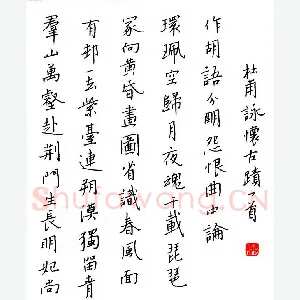 羣山萬壑赴荊門生長明妃尚
有邨一去紫臺連朔漠獨留青
冢向黃昏畫圖省識春風面
環珮空歸月夜魂千載琵琶
作胡語分明怨恨曲中論
杜甫詠懷古蹟首
Shufawang.CN